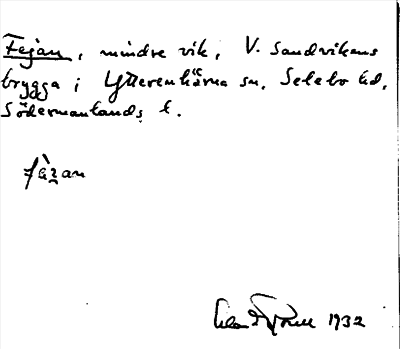 Fejan, mindre vik, V. Sandvikens
brygga i Ytterenhörna sn, Selebo hd,
Södermanlands l.
1932